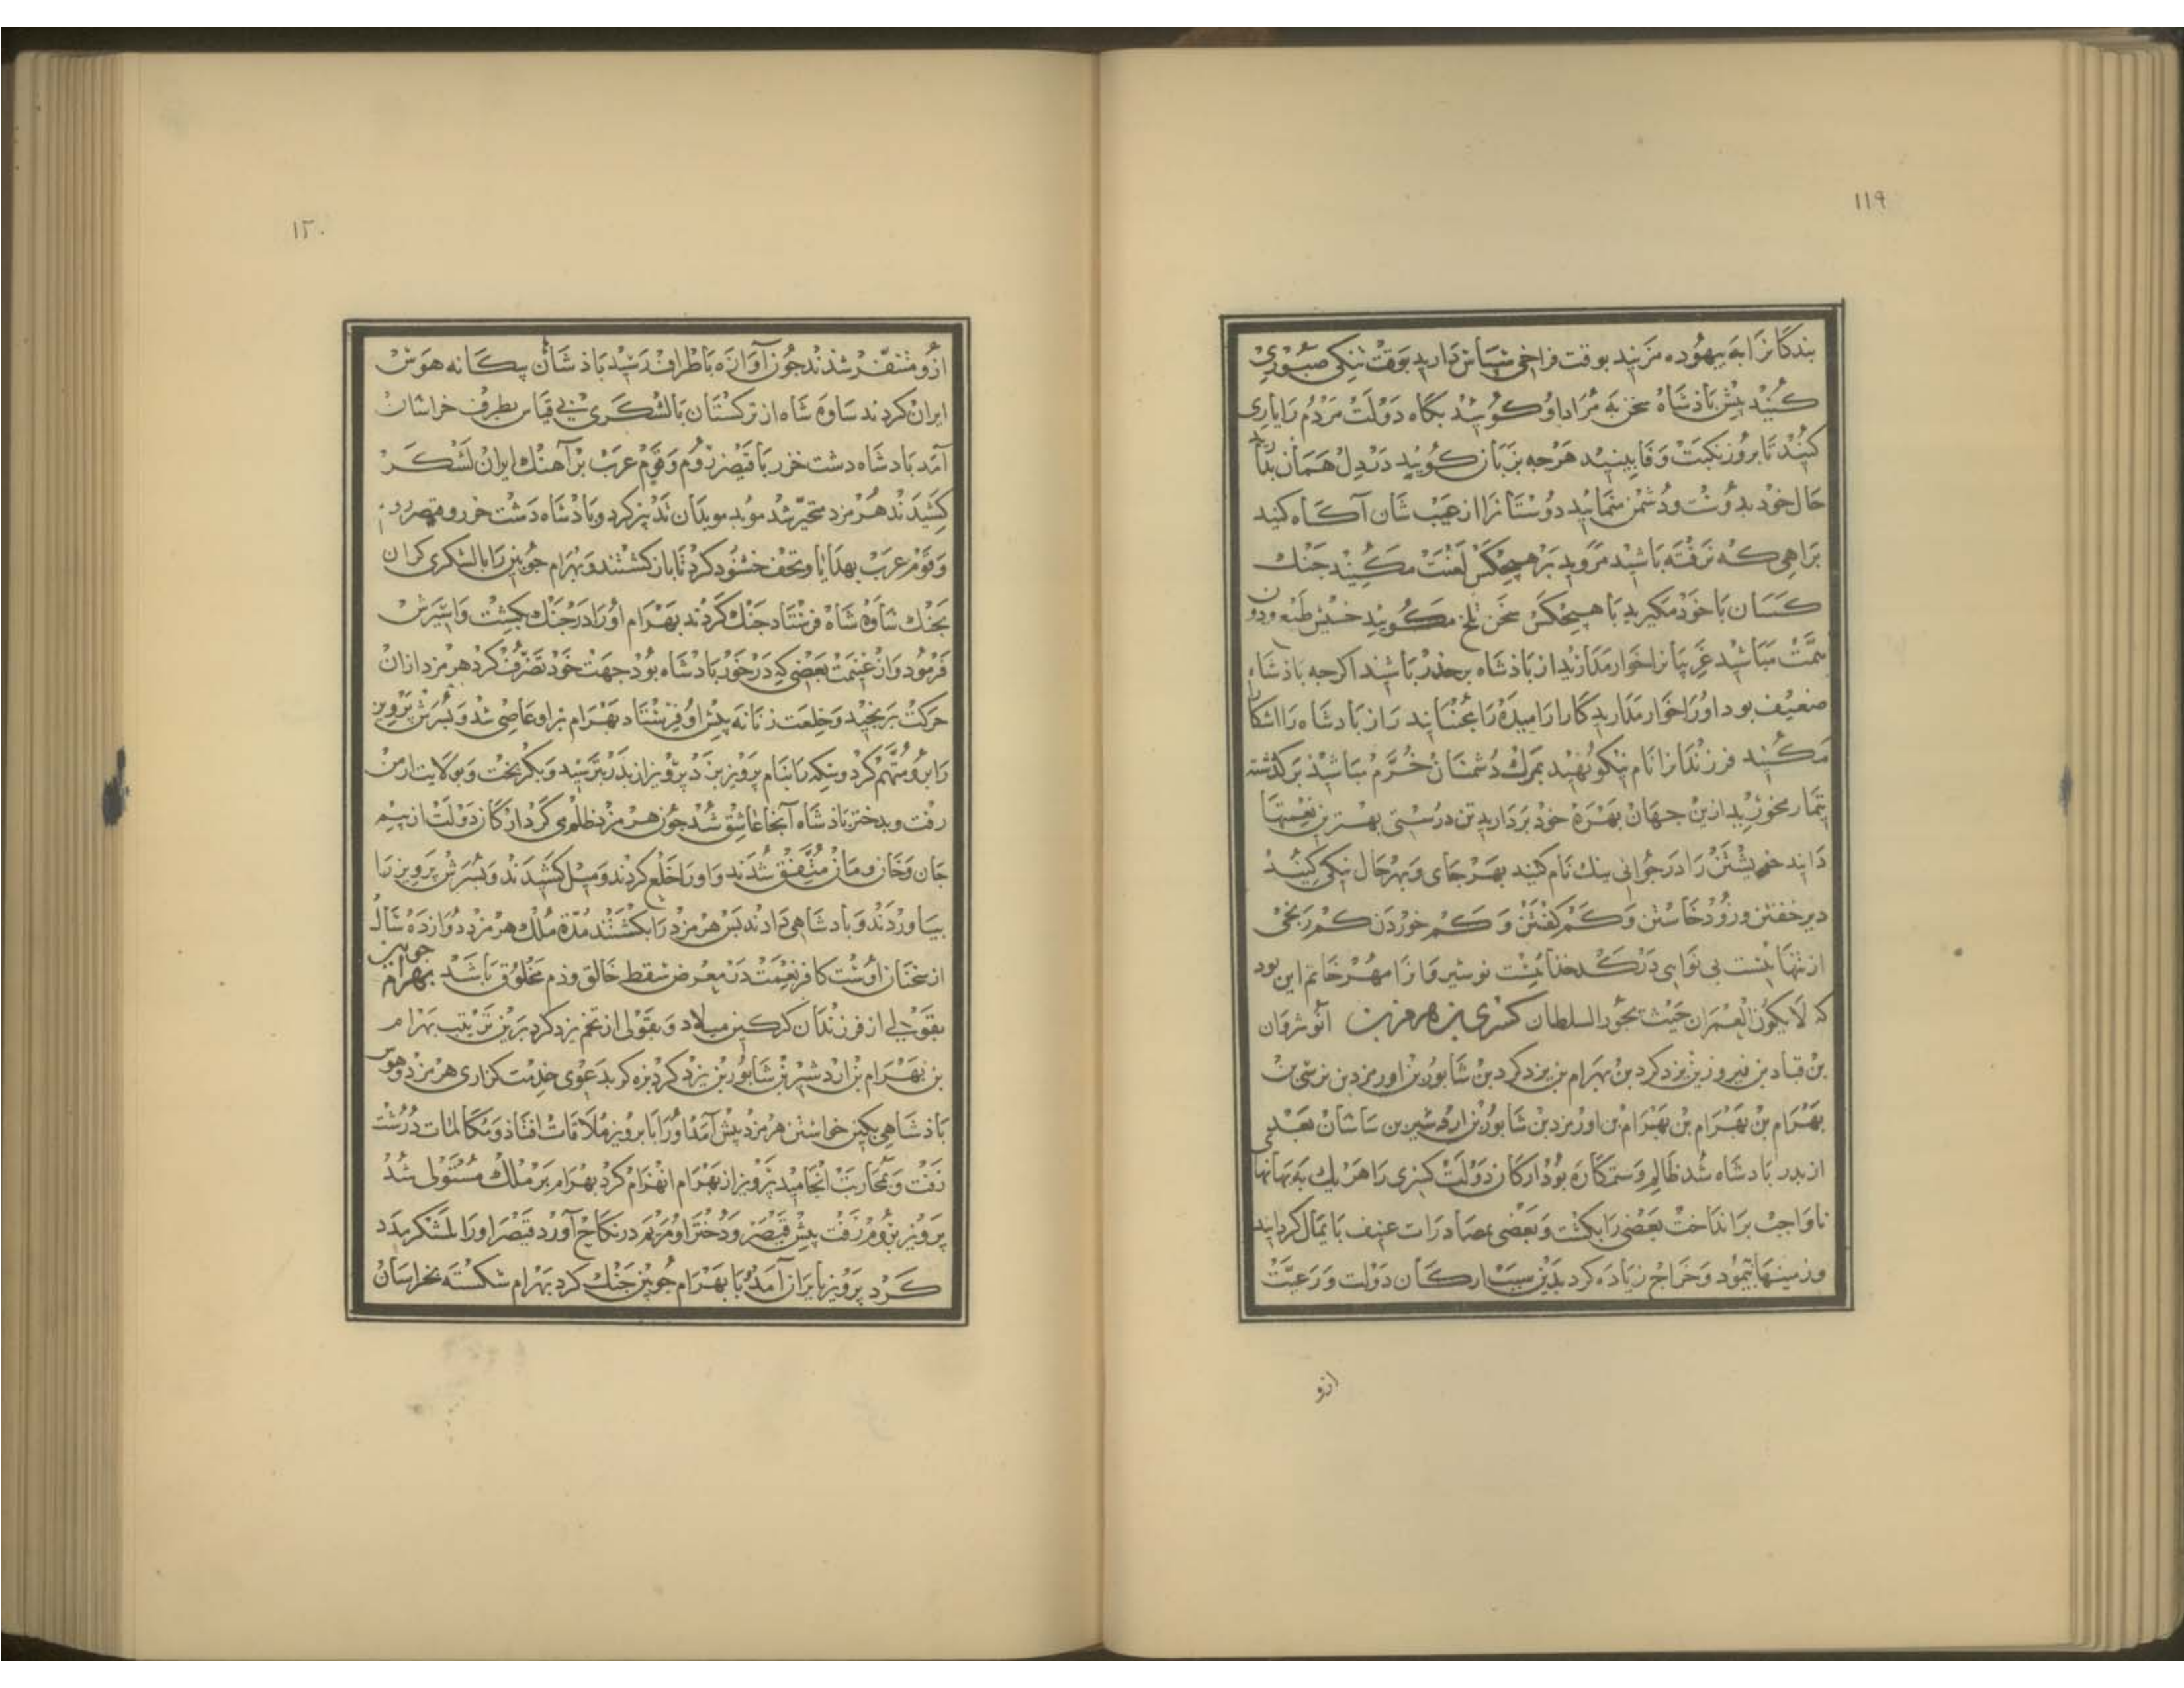 ۱۱۹
بندکانرا به بیهوده مزنید بوقت فراخی سپاس دارید بوقت تنکی صبوری
کنید پیش باذشاه سخن به مراد او کوئید بکاه دولت مردم را یاری
کنید تا بروز نکبت وفا بینید هرجه بزبان کویید در دل همان
حال خود بدوست ودشمن منمایید دوستانرا از عیب شان آکاه کنید
براهی که نرفته باشید مروید بر هیچکس لعنت مکنید جنک
کسان با خود مکیرید با هیچکس سخن تلخ مکویید خسیس طبع ودون
همت مباشید غریبانرا خوار مدارید از باذشاه برحذر باشید اکرجه باذشاه
ضعیف بود اورا خوار مدارید راز بادشاه را اشکارا
مکنید فرزندانرا نام نیکو نهید بمرک دشمنان خرم مباشید برکذشته
تیمار مخورید ازین جهان بهره خود بردارید تن درستی بهترین نعمتها
دانید خویشتن را در جوانی نیک نام کنید بهر جای وبهر حال نیکی کنید
دیر خفتن وزود خاستن وکم کفتن وکم خوردن کم رنجی
از تنهائیست بی نوایی در کدخدائیست نوشیروانرا مهر خاتم این بود
که لایکون العمران حیث یجور السلطان کسری بن هرمز بن انوشروان
بن قباد بن فیروز بن یزدکرد بن بهرام بن یزدکرد بن شابور بن اورمزد بن نرسی بن
بهرام بن بهرام بن بهرام بن اورمزد بن شابور بن اردشیر بن ساسان بعد
از بدر بادشاه شد ظالم وستمکاره بود ارکان دولت کسری را هر یک به بهانها
ناواجب برانداخت بعضی را بکشت وبعضی بمصادرات عنیف بایمال کردانید
وزمینها بیمود وخراج زیاده کرد بدین سبب ارکان دولت ورعیت
ازو
۱۲۰
ازو متنفر شدند جون آوازه باطراف رسید باذشاهان بیکانه هوس
ایران کردند ساوه شاه از ترکستان با لشکری بی قیاس بطرف خراسان
آمد بادشاه دشت خزر با قیصر روم وقوم عرب بر آهنک ایران لشکر
کشیدند هرمزد متحیر شد موبد موبدان تدبیر کرد وبادشاه دشت خزر وقیصر روم
وقوم عرب بهدایا وتحف خشنود کرد تا باز کشتند وبهرام جوبین را با لشکری کران
بجنک ساوه شاه فرستاد جنک کردند بهرام اورا در جنک بکشت واسیرش
فرمود واز غنیمت بعضی که در خور بادشاه بود جهت خود تصرف کرد هرمزد ازان
حرکت برنجید وخلعت زنانه بیش او فرستاد بهرام برو عاصی شد وبسرش برویز
را برو متهم کرد وسکه بنام برویز بزد برویز از بدر بترسید وبکریخت وبولایت ارمن
رفت وبدختر باذشاه آنجا عاشق شد جون هرمزد ظلم می کرد ارکان دولت از بیم
جان وخان ومان متفق شدند واورا خلع کردند ومیل کشیدند وبسرش برویز را
بیاوردند وبادشاهی دادند بس هرمزد را بکشتند مدة ملک هرمزد دوازده سال
از سخنان اوست کافر نعمت در معرض سقط خالق وذم مخلوق باشد بهرام جوبین
بقولی از فرزندان کرکین میلاد وبقولی از تخم یزدکرد برین ترتیب بهرام
بن بهرام بن اردشیر بن شابور بن یزدکرد بزه کر بدعوی خدمت کزاری هرمزد وهوس
باذشاهی بکین خواستن هرمزد بیش آمد اورا با برویز ملاقات افتاذ ومکالمات درشت
رفت وبمحاربت انجامید برویز از بهرام انهزام کرد بهرام بر ملک مستولی شد
برویز بروم رفت بیش قیصر ودختر او مریم در نکاح آورد قیصر اورا بلشکر مدد
کرد برویز بایران آمد با بهرام جوبین جنک کرد بهرام شکسته بخراسان